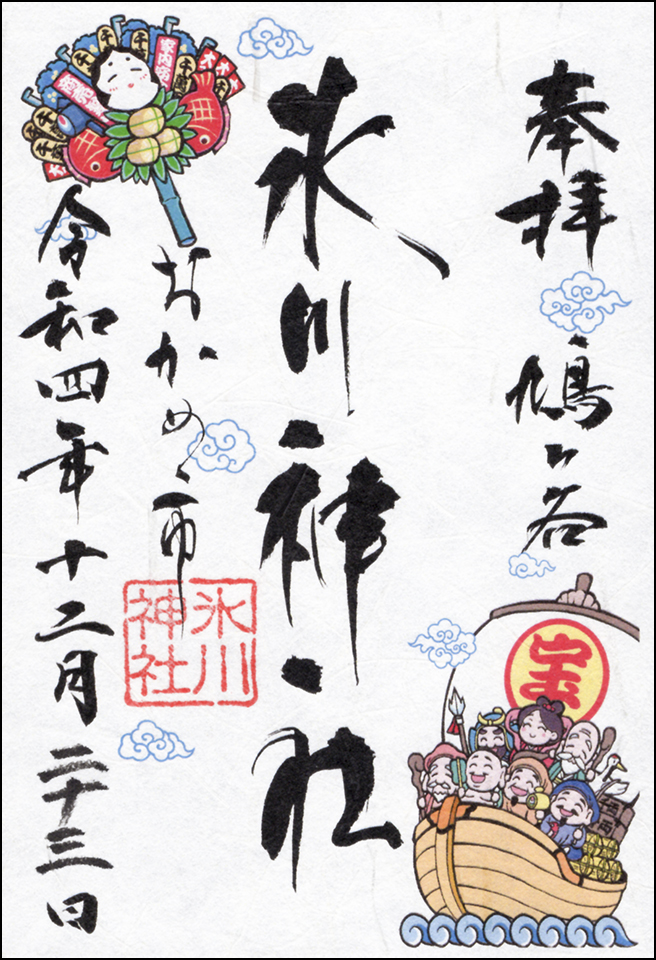 奉拝 鳩ヶ谷
氷川神社
おかめ市
令和四年十二月二十三日
氷川
神社
宝
家内安